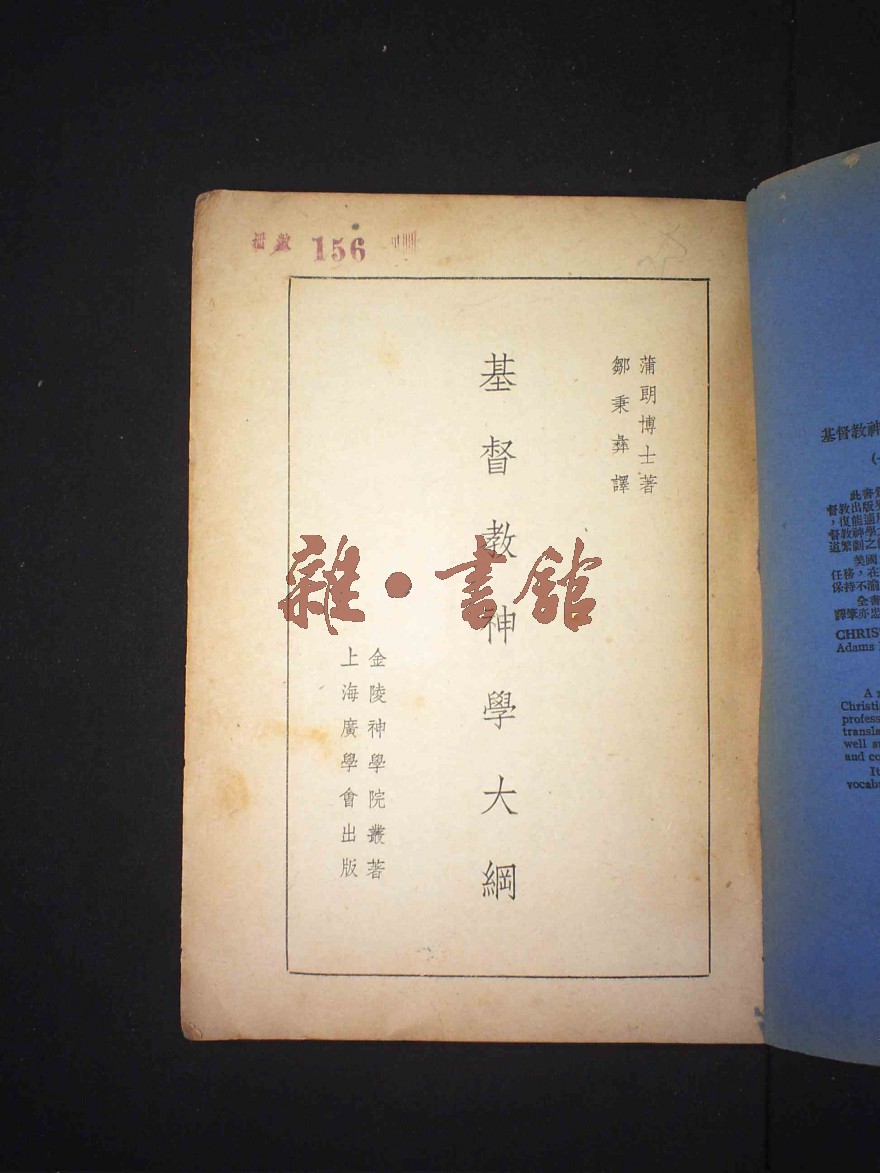 冊數 156
蒲朗博士著
鄒秉彝譯
基督教神學大綱
金陵神學院叢著
上海廣學會出版
雜·書館
基督教神
(一
此書
督教出版
,復能適
督教神學
返繁劃之
美國
任務,在
保持不渝
全書
譯筆亦忠
CHRIS
Adams
A
Christi
profess
transla
well su
and co
It
vocabu